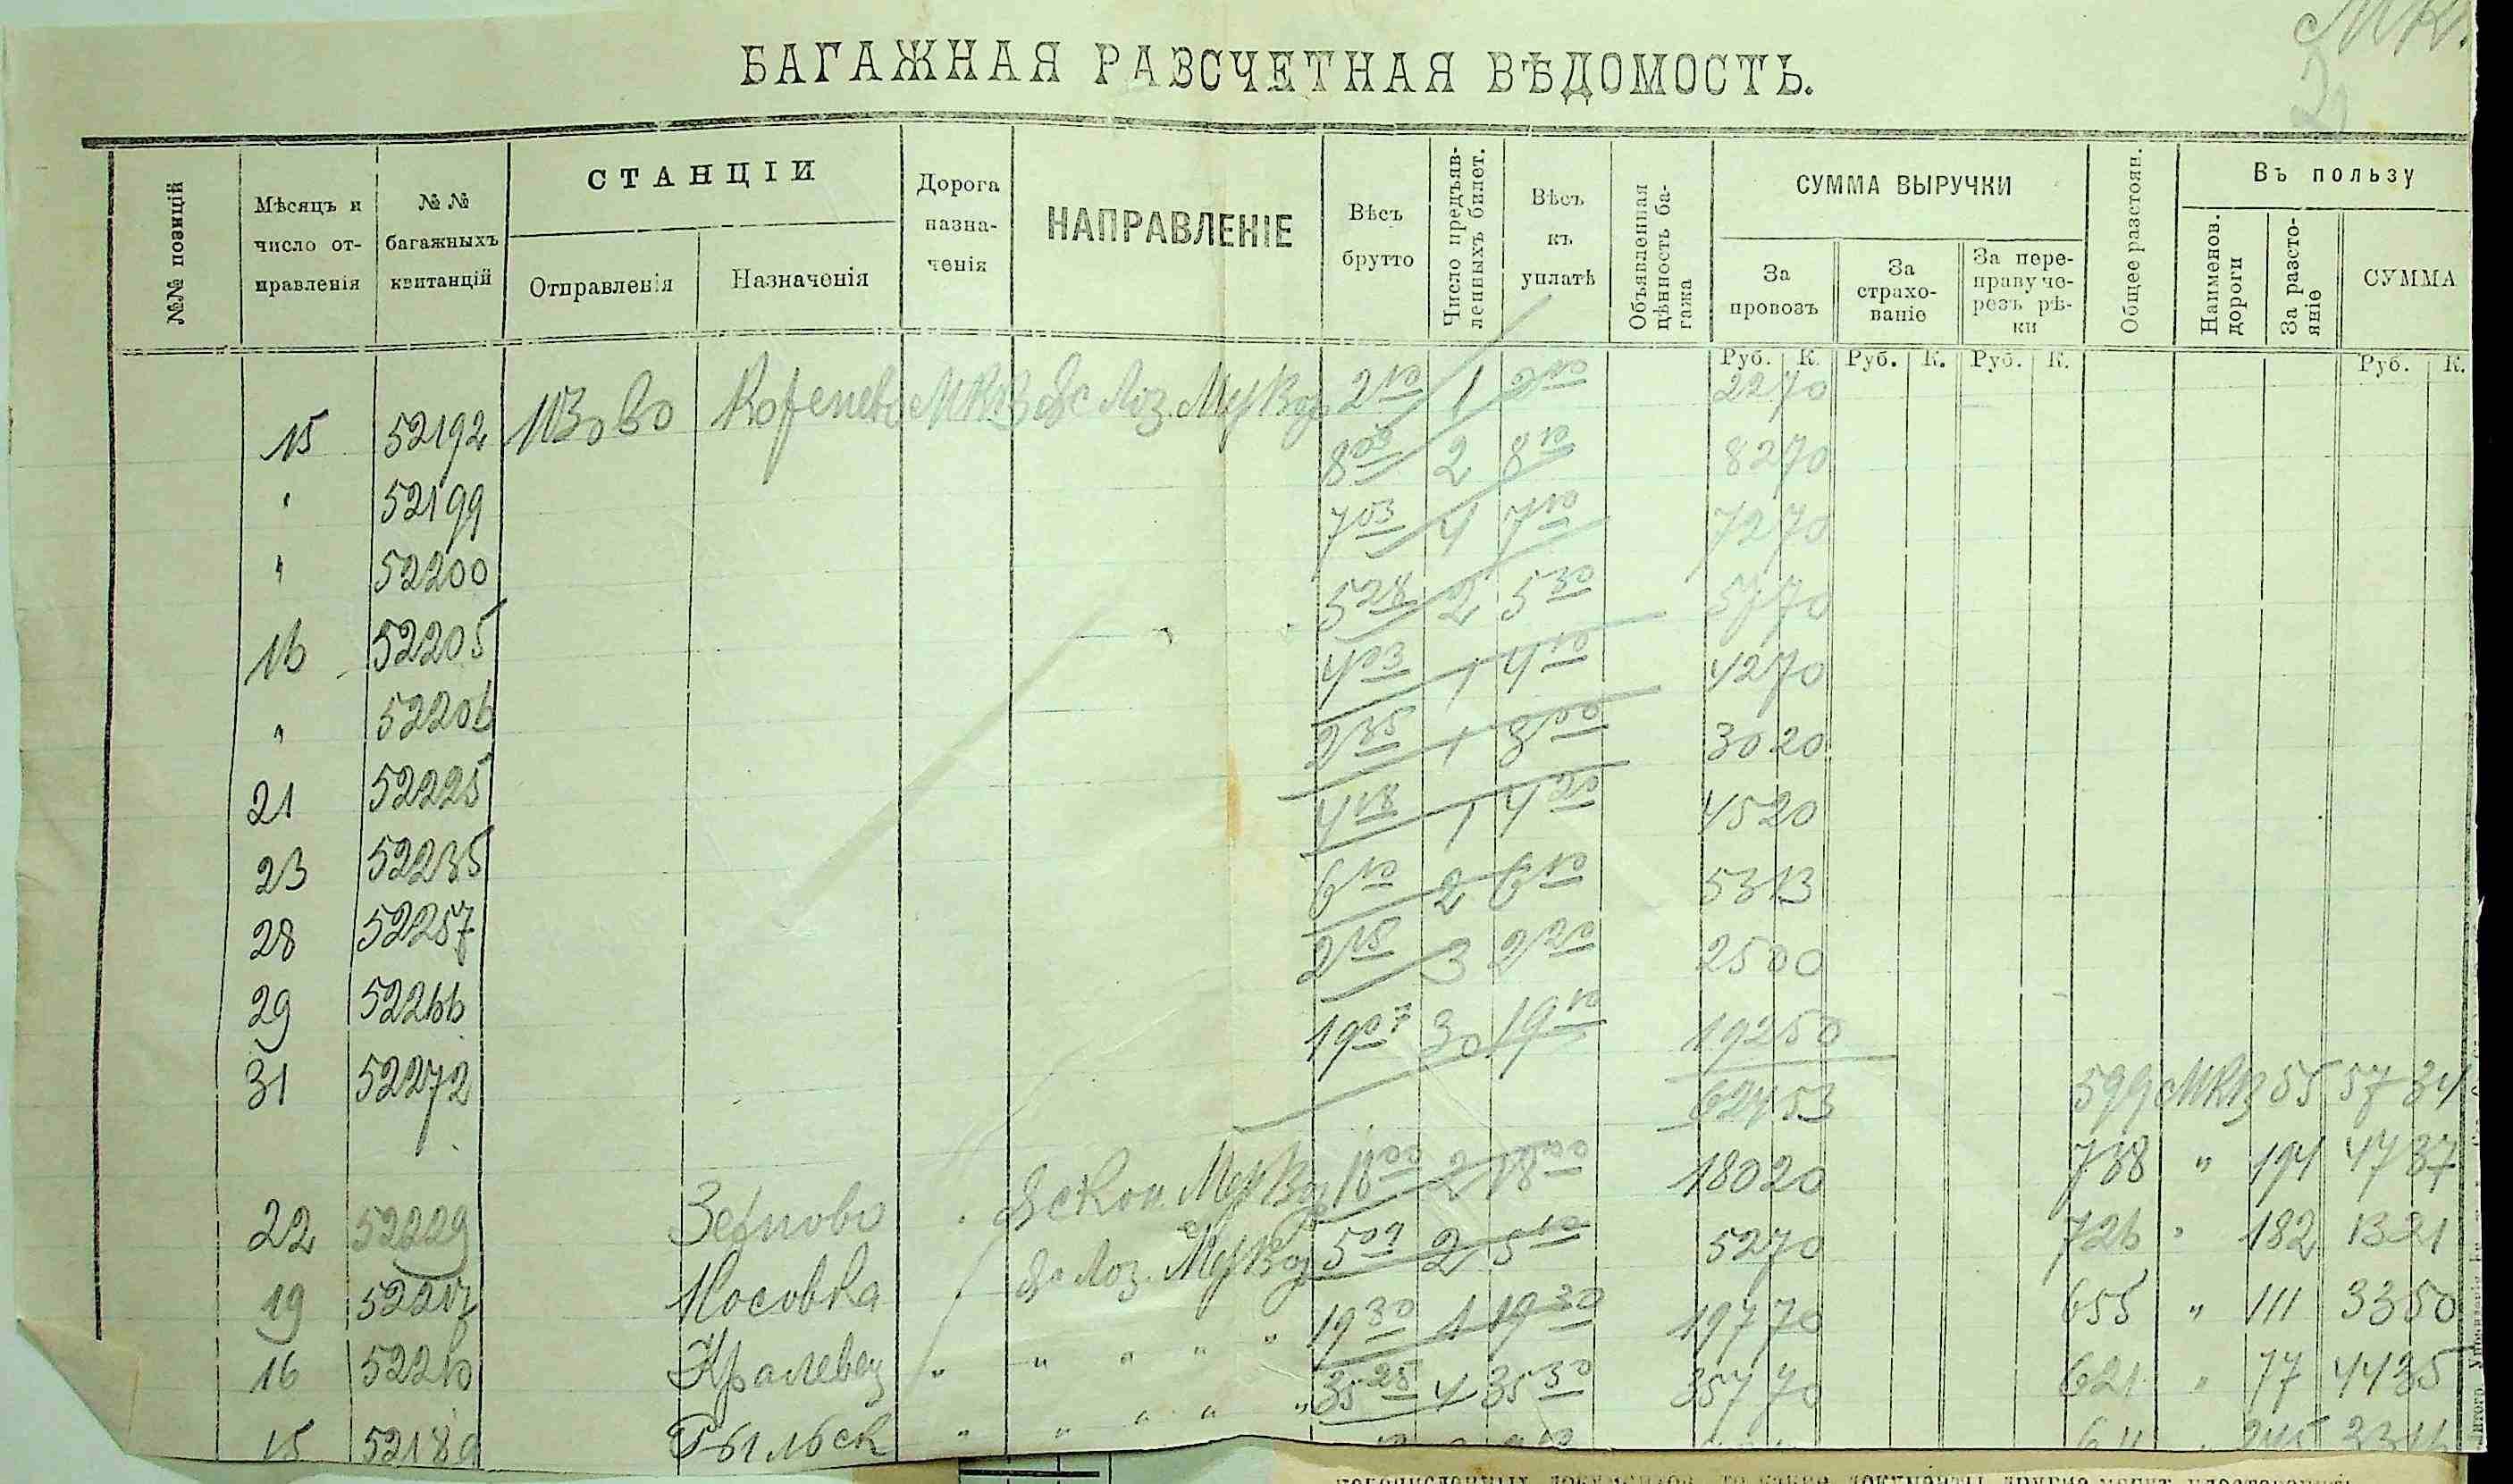 БАГАЖНАЯ РАЗСЧЕТНАЯ ВѢДОМОСТЬ.
2
№№ позицій
Мѣсяцъ и число отправленія
№№ багажныхъ квитанцій
СТАНЦІИ
Отправленія
Назначенія
Дорога назна-
ченія
НАПРАВЛЕНІЕ
Вѣсъ брутто
Число предъяв-
ленныхъ билет.
Вѣсъ къ уплатѣ
Объявленная цѣнность ба-
гажа
СУММА ВЫРУЧКИ
За провозъ
За страхо-
ваніе
За пере-
праву че-
резъ рѣ-
ки
Общее разстоян.
Въ пользу
Наименов. дороги
За разсто-
яніе
СУММА
Руб. К. Руб. К. Руб. К. Руб. К.
15 52192 Коренево МКВ Лоз. Мер 2 10 1 2 10 22 70
" 52199 8 00 2 8 10 82 70
" 52200 7 03 4 7 10 72 70
16 52205 5 28 2 5 30 57 70
" 52206 4 03 1 4 10 42 70
21 52225 2 35 1 3 00 30 20
23 52235 4 18 1 4 20 45 20
28 52257 6 10 2 6 10 53 13
29 52266 2 18 3 2 20 25 00
31 52272 19 07 30 19 10 192 50
624 53 599 МКВ 55 57 34
22 52229 Зерново Кон. Мер 18 00 2 18 00 180 20 788 " 194 47 37
19 52217 Носовка Лоз. Мер 5 09 2 5 10 52 70 726 " 182 13 21
16 52210 Кралевец " " " " " 19 30 1 19 30 197 70 655 " 111 33 50
15 52189 Рыльск " " " " " 35 28 4 35 30 357 70 621 " 77 44 35